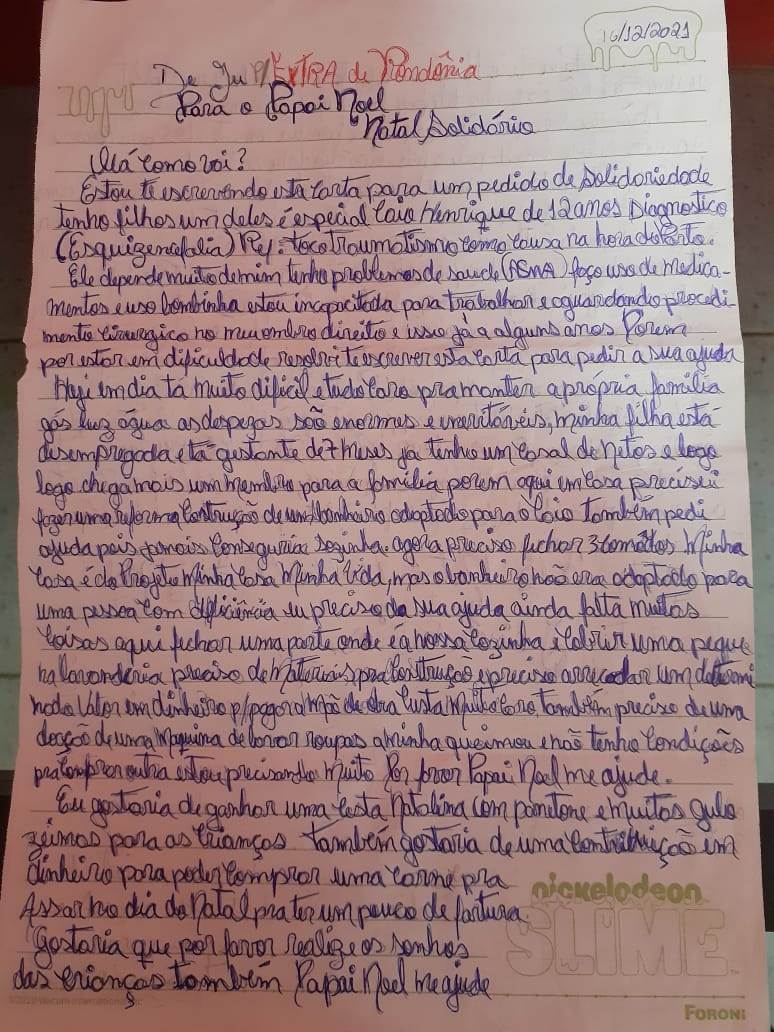 16/12/2021
De Ju P/EXTRA de Rondônia
Para o Papai Noel
Natal Solidário
Olá como vai?
Estou te escrevendo esta carta para um pedido de Solidariedade
tenho filhos um deles é especial Caio Henrique de 12 anos Diagnostico
(Esquizencefalia) Ref: toco Traumatismo como causa na hora do Parto.
Ele depende muito de mim tenho problemas de saude (ASMA) faço uso de Medica-
mentos e uso bombinha estou incapacitada para trabalhar e aguardando procedi
mento cirurgico no meu ombro direito e isso já a alguns anos Porem
por estar em dificuldade resolvi te escrever esta carta para pedir a sua ajuda
Hoje em dia tá muito dificil e tudo caro pra manter a própria familia
gás luz agua as despezas são enormes e inevitáveis, minha filha está
desempregada e tá gestante de 7 meses já tenho um casal de netos e logo
logo chega mais um membro para a familia porem aqui em casa precisei
fazer uma reforma Contrução de um banheiro adaptado para o Caio Tambem pedi
ajuda pois jamais Conseguiria Sozinha. agora preciso fechar 3 comodos Minha
Casa é do Projeto Minha Casa Minha Vida, mas o banheiro não era adaptado para
uma pessoa com deficiência eu preciso da sua ajuda ainda falta muitas
Coisas aqui fechar uma parte onde é a nossa Cozinha e Cobrir uma peque
na lavanderia preciso de Materiais pra Conttrução e preciso arrecadar um determi
nado Valor em dinheiro p/pagar a mão de obra Custa Muito Caro, Também preciso de uma
doação de uma Maquina de lavar roupas a minha queimou e não tenho Condições
pra comprar outra estou precisando Muito Por favor Papai Noel me ajude.
Eu gostaria de ganhar uma Cesta Natalina com panetone e muitas gulo
zeimas para as Crianças também gostaria de uma Contribuição em
dinheiro para poder Comprar uma Carne pra
Assar no dia do Natal pra ter um pouco de fartura
Gostaria que por favor realize os sonhos
das crianças também Papai Noel me ajude
nickelodeon
SLIME
FORONI